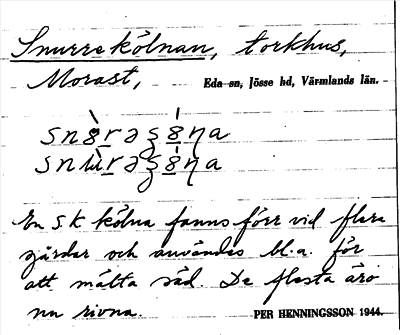 Snurrekölnan, torkhus,
Morast, Eda sn, Jösse hd, Värmlands län.
En s.k. kölna fanns förr vid flera
gårdar och användes bl.a. för
att mälta säd. De flesta äro
nu rivna. PER HENNINGSSON 1944.